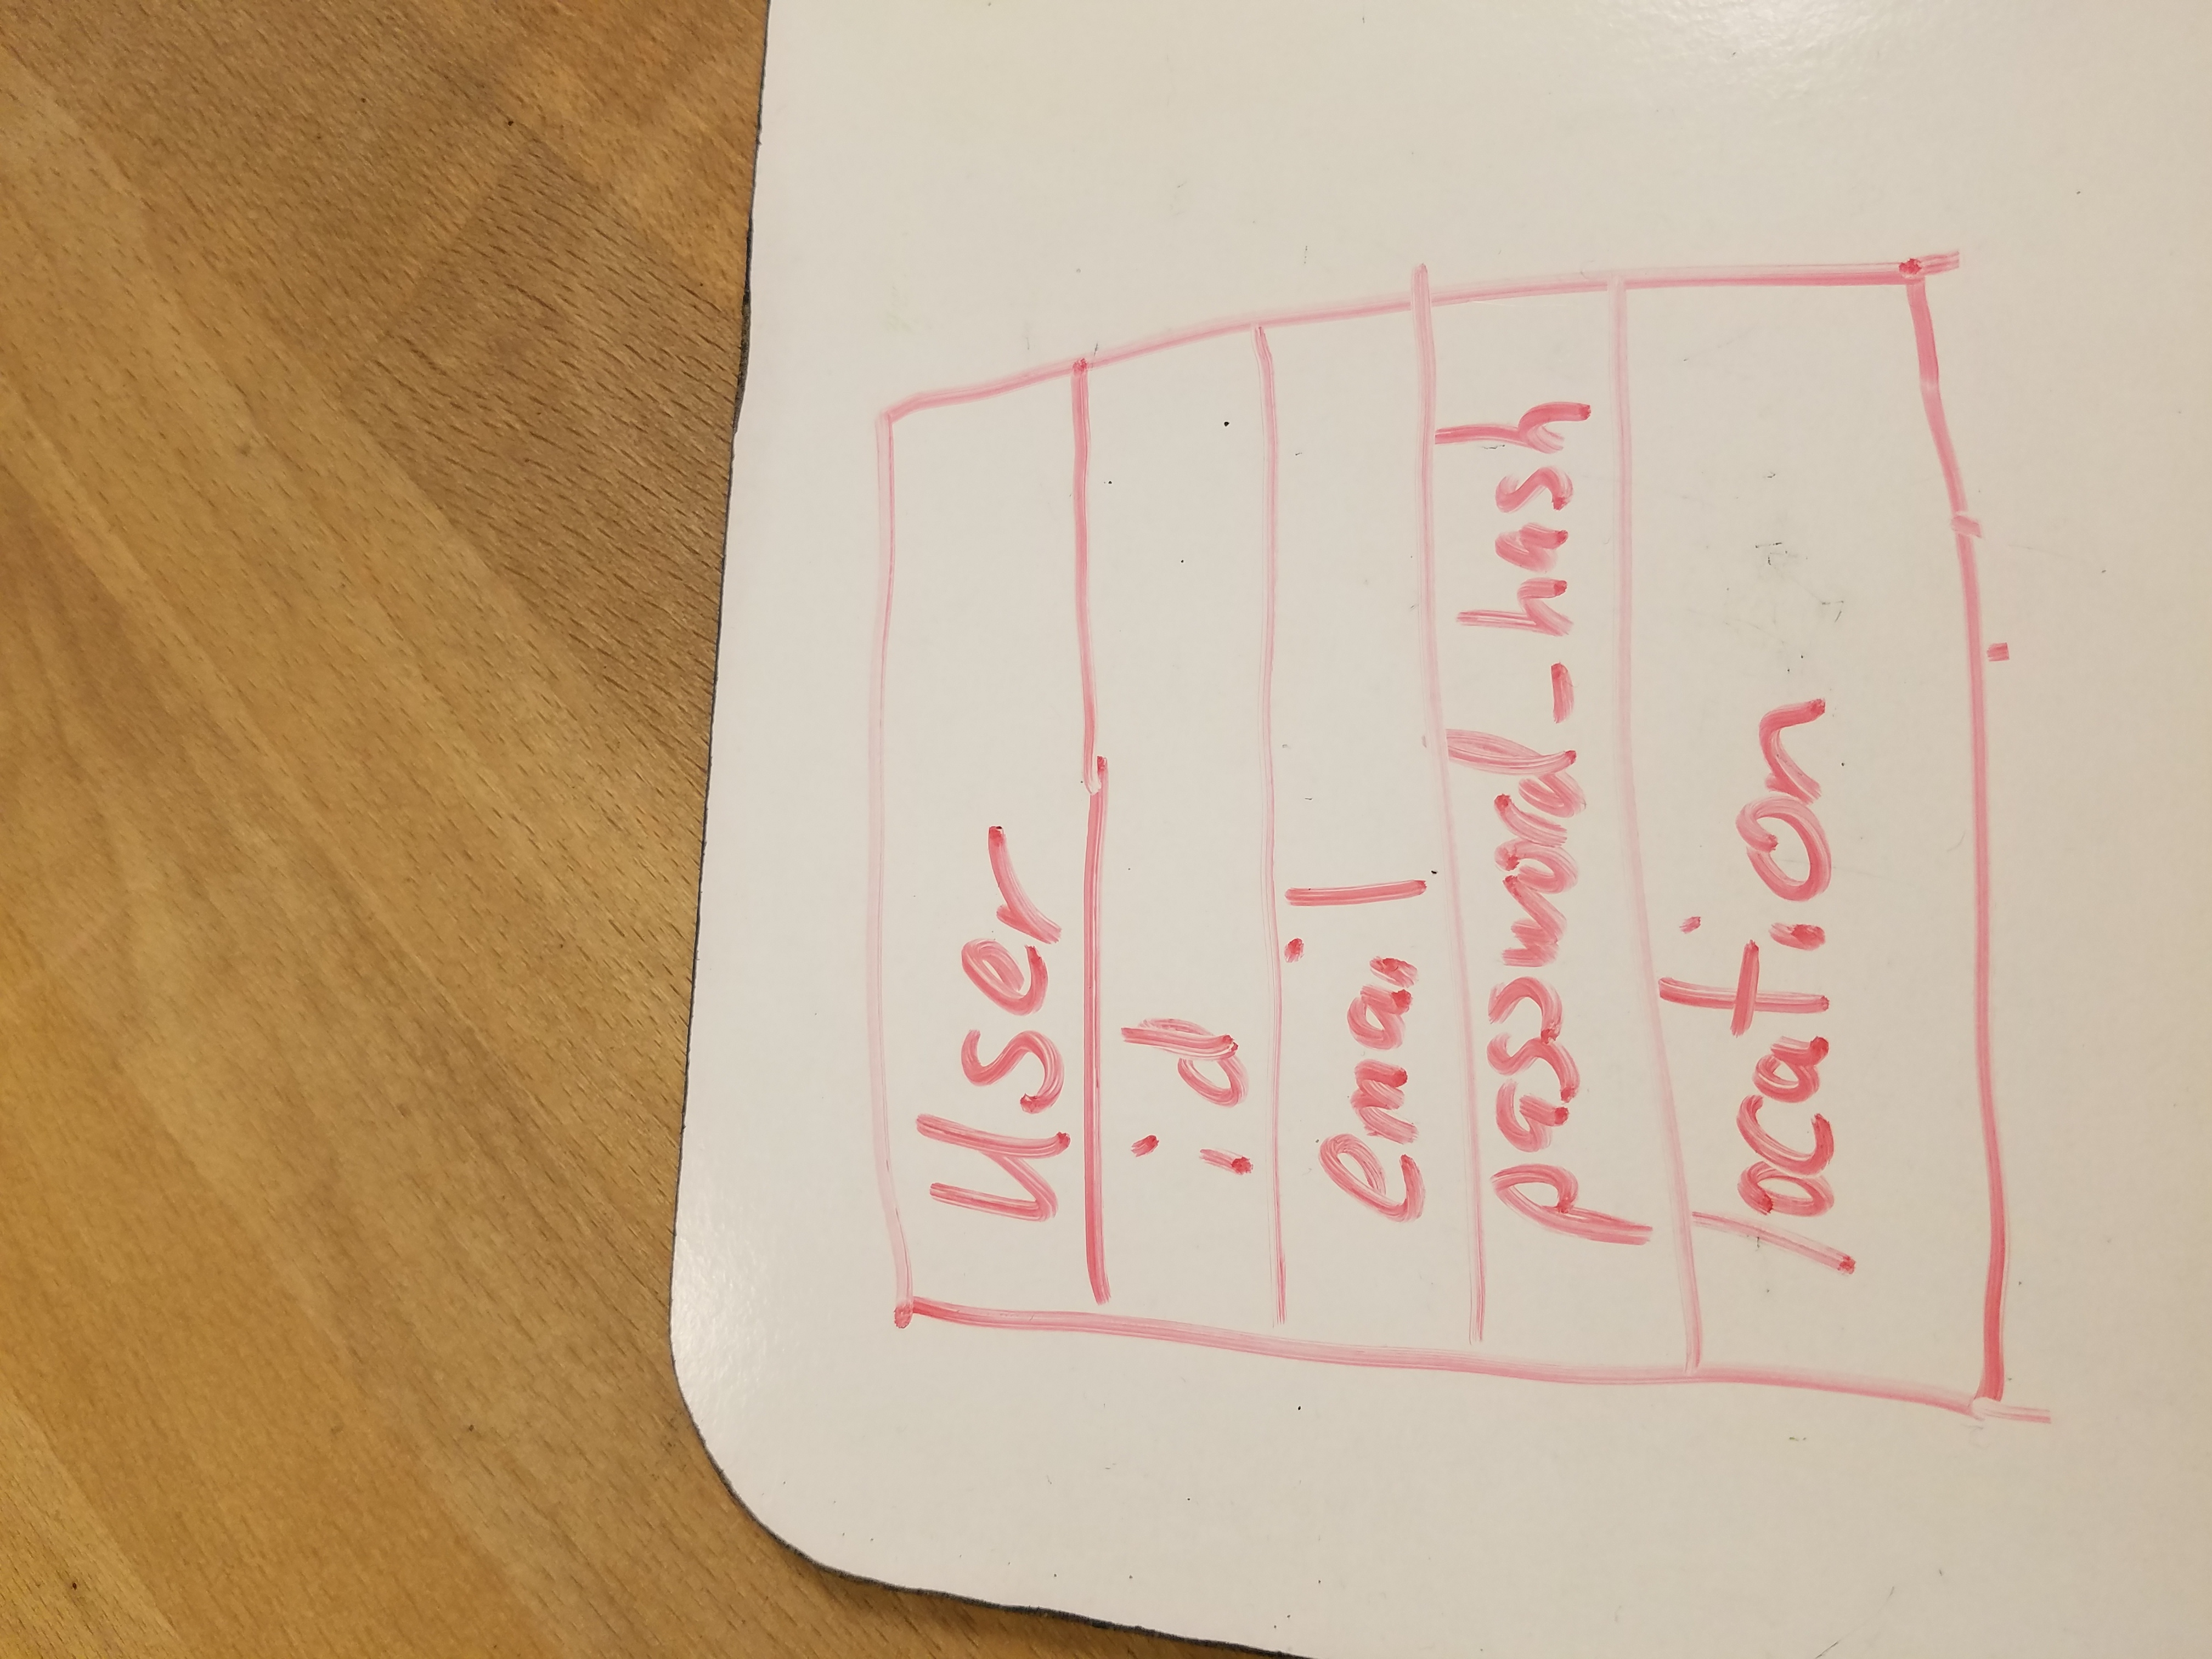 User
id
email
password_hash
location